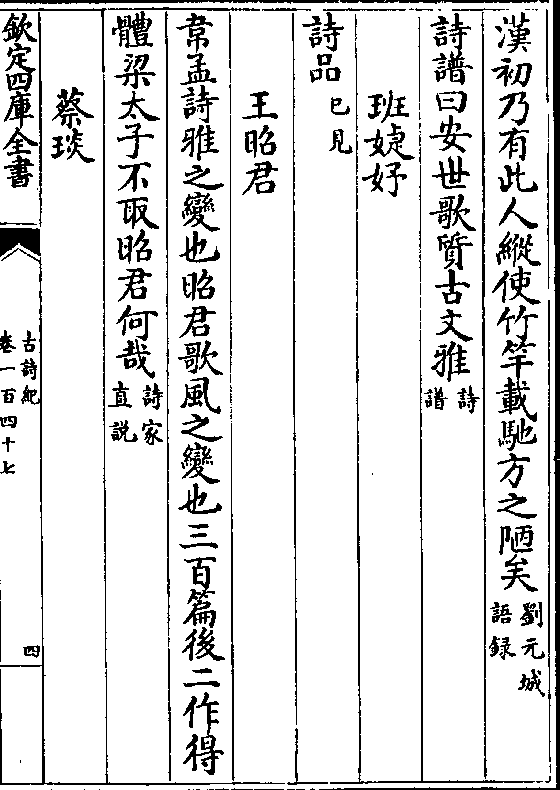 漢初乃有此人縱使竹竿載馳方之陋矣劉元城語録
詩譜曰安世歌質古文雅詩譜
班婕妤
詩品已見
王昭君
韋孟詩雅之變也昭君歌風之變也三百篇後二作得
體梁太子不取昭君何哉詩家直説
蔡琰
欽定四庫全書
古詩紀
卷一百四十七
四